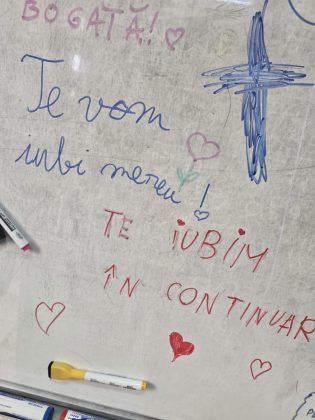 BOGATĂ!
Te vom
iubi mereu!
TE IUBIM
ÎN CONTINUAR